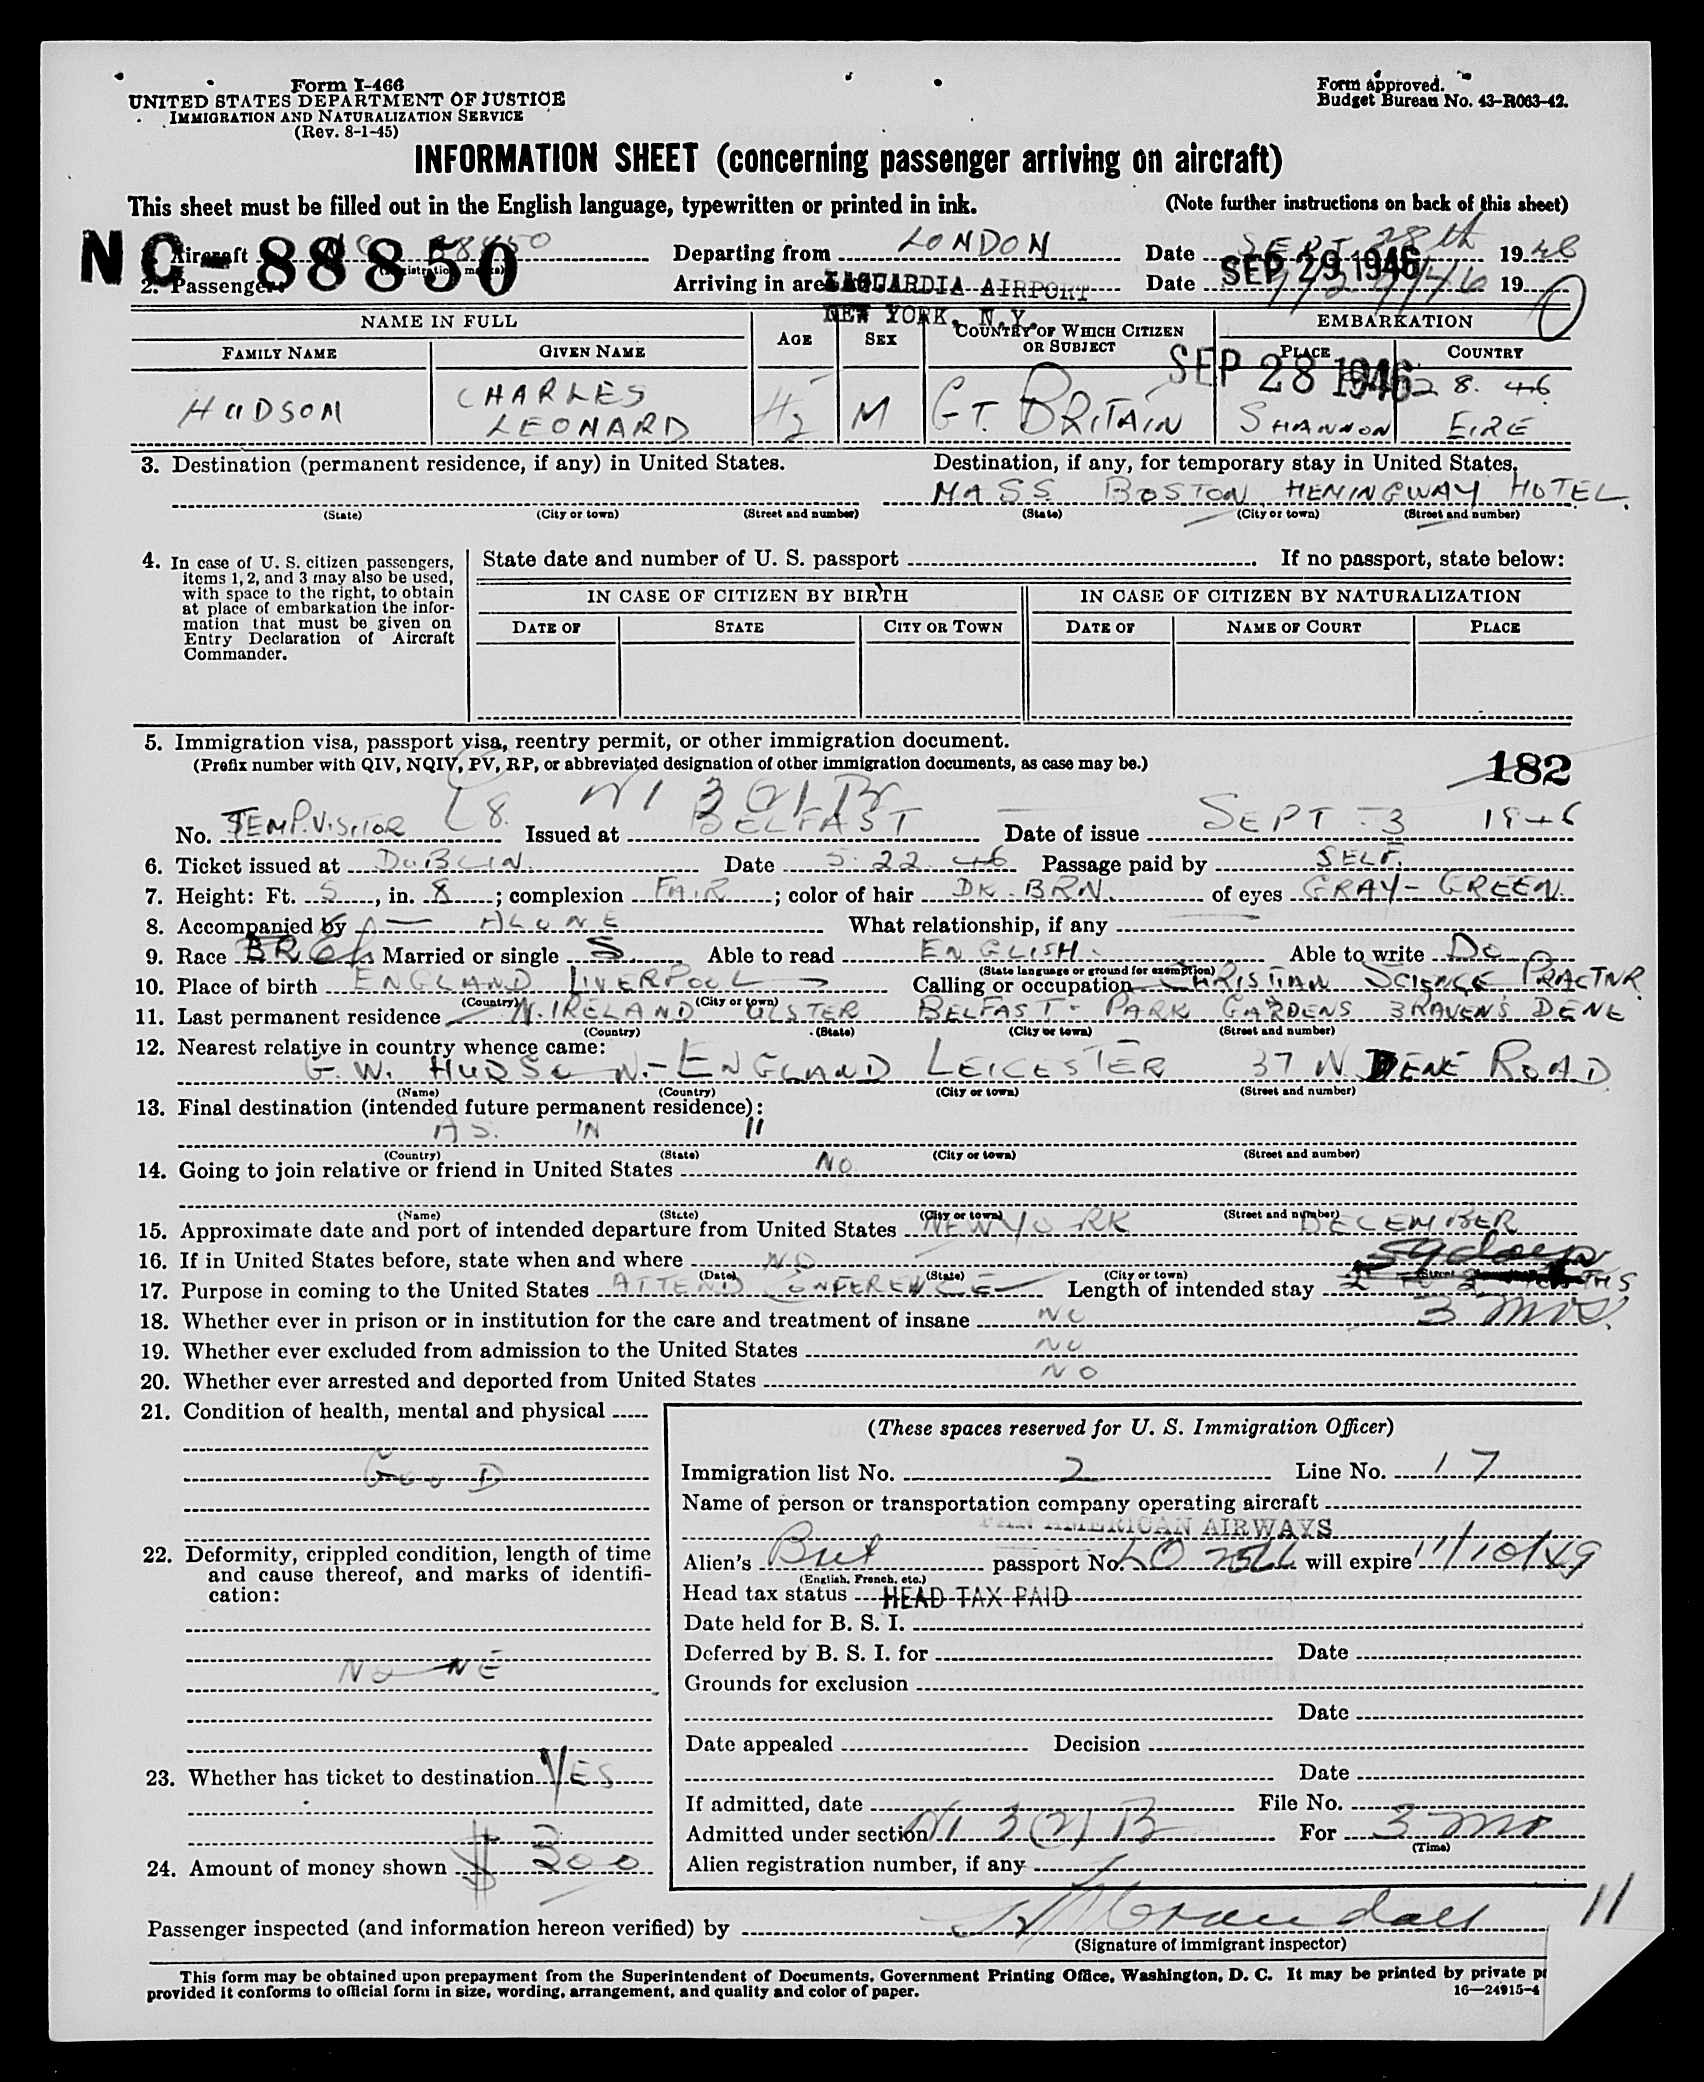 Form I-466
UNITED STATES DEPARTMENT OF JUSTICE
IMMIGRATION AND NATURALIZATION SERVICE
(Rev. 8-1-45)
Form approved.
Budget Bureau No. 43-R063-42.
INFORMATION SHEET (concerning passenger arriving on aircraft)
This sheet must be filled out in the English language, typewritten or printed in ink. (Note further instructions on back of this sheet)
NC-88850
Aircraft NC 88850 Departing from LONDON Date SEPT 28th 19 46
(Registration marks)
SEP 29 1946
2. Passenger: Arriving in area LAGUARDIA AIRPORT Date 9/29/46 19
NEW YORK, N.Y.
NAME IN FULL AGE SEX COUNTRY OF WHICH CITIZEN OR SUBJECT EMBARKATION
FAMILY NAME GIVEN NAME PLACE COUNTRY
SEP 28 1946 28. 46
HUDSON CHARLES LEONARD 42 M GT. BRITAIN SHANNON EIRE
3. Destination (permanent residence, if any) in United States. Destination, if any, for temporary stay in United States.
MASS. BOSTON, HEMINGWAY HOTEL.
(State) (City or town) (Street and number) (State) (City or town) (Street and number)
4. In case of U. S. citizen passengers, items 1, 2, and 3 may also be used, with space to the right, to obtain at place of embarkation the information that must be given on Entry Declaration of Aircraft Commander.
State date and number of U. S. passport If no passport, state below:
IN CASE OF CITIZEN BY BIRTH IN CASE OF CITIZEN BY NATURALIZATION
DATE OF STATE CITY OR TOWN DATE OF NAME OF COURT PLACE
5. Immigration visa, passport visa, reentry permit, or other immigration document.
(Prefix number with QIV, NQIV, PV, RP, or abbreviated designation of other immigration documents, as case may be.)
182
No. TEMP. VISITOR Issued at BELFAST Date of issue SEPT - 3 1946
6. Ticket issued at DUBLIN. Date 5. 22. 46 Passage paid by SELF.
7. Height: Ft. 5, in. 8; complexion FAIR; color of hair DK. BRN. of eyes GRAY-GREEN
8. Accompanied by ALONE What relationship, if any
9. Race Married or single S. Able to read ENGLISH. Able to write DO
(State language or ground for exemption)
10. Place of birth ENGLAND LIVERPOOL Calling or occupation CHRISTIAN SCIENCE PRACTNR
(Country) (City or town)
11. Last permanent residence N. IRELAND ULSTER BELFAST. PARK GARDENS 3 RAVEN'S DENE
(Country) (State) (City or town) (Street and number)
12. Nearest relative in country whence came:
G. W. HUDSON.- ENGLAND LEICESTER 37 N. DENE ROAD
(Name) (Country) (City or town) (Street and number)
13. Final destination (intended future permanent residence):
AS IN 11
(Country) (State) (City or town) (Street and number)
14. Going to join relative or friend in United States NO
(Name) (State) (City or town) (Street and number)
15. Approximate date and port of intended departure from United States NEW YORK DECEMBER
16. If in United States before, state when and where NO
(Date) (State) (City or town) (Street
17. Purpose in coming to the United States ATTEND CONFERENCE Length of intended stay
3 mos.
18. Whether ever in prison or in institution for the care and treatment of insane NO
19. Whether ever excluded from admission to the United States NO
20. Whether ever arrested and deported from United States NO
21. Condition of health, mental and physical
GOOD
22. Deformity, crippled condition, length of time and cause thereof, and marks of identification:
NONE
23. Whether has ticket to destination YES
24. Amount of money shown $ 300
(These spaces reserved for U. S. Immigration Officer)
Immigration list No. 2 Line No. 17
Name of person or transportation company operating aircraft
PAN AMERICAN AIRWAYS
Alien's Brit passport No. will expire 11/10/49
(English, French, etc.)
Head tax status HEAD TAX PAID
Date held for B. S. I.
Deferred by B. S. I. for Date
Grounds for exclusion
Date
Date appealed Decision
Date
If admitted, date File No.
Admitted under section 3(2) B For 3 mo
(Time)
Alien registration number, if any
11
Passenger inspected (and information hereon verified) by
(Signature of immigrant inspector)
This form may be obtained upon prepayment from the Superintendent of Documents, Government Printing Office, Washington, D. C. It may be printed by private
provided it conforms to official form in size, wording, arrangement, and quality and color of paper.
16—24915-4